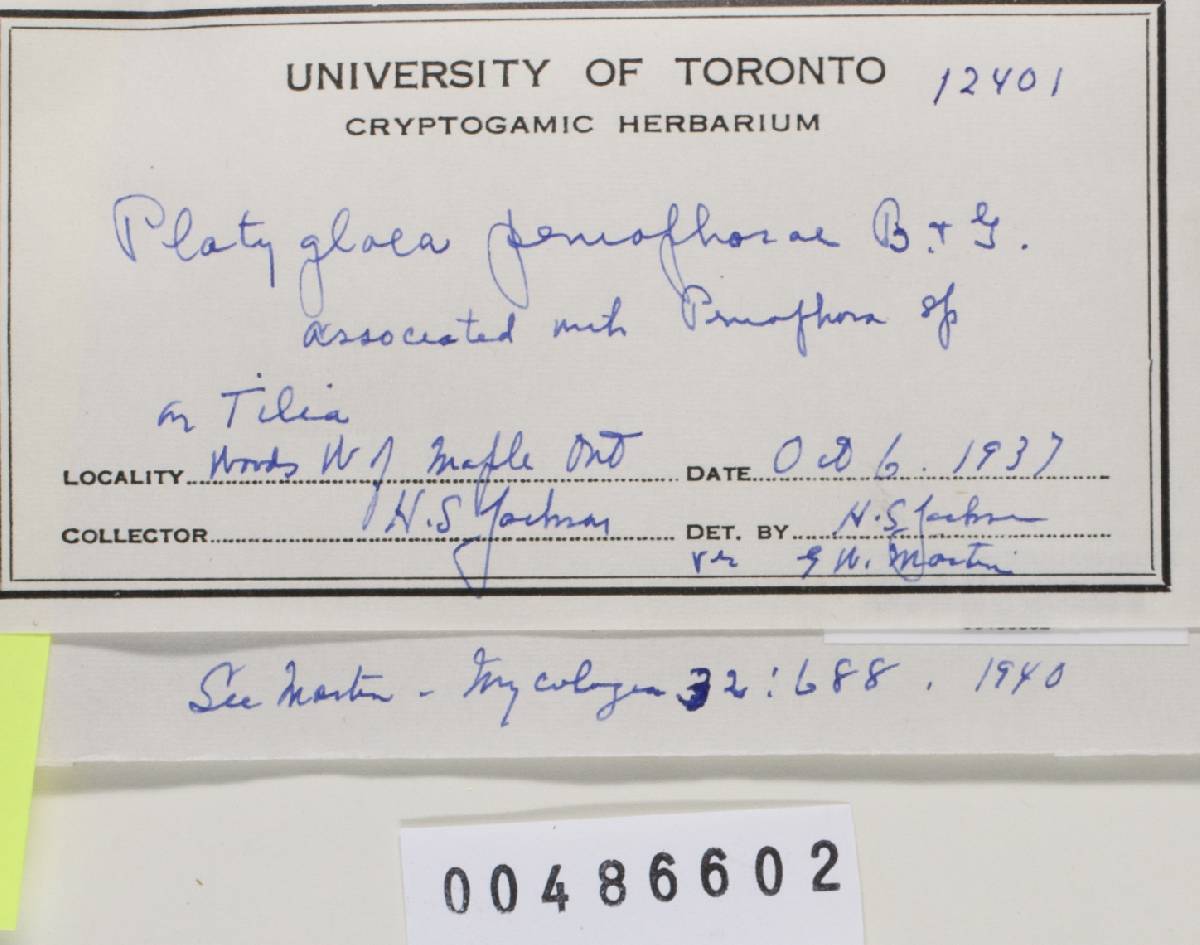 UNIVERSITY OF TORONTO 12401
CRYPTOGAMIC HERBARIUM
Platygloea peniophorae B. + G.
associated with Peniophora sp
on Tilia
LOCALITY Woods W of Maple Ont DATE Oct 6. 1937
COLLECTOR H.S. Jackson DET. BY H.S. Jackson
ver G W. Martin
See Martin - Mycologia 32:688. 1940
00486602